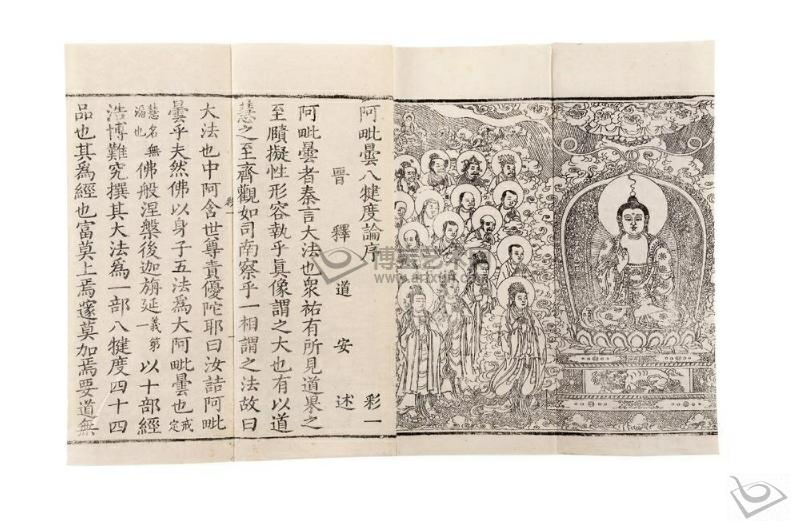 阿毗曇八犍度論序 彩一
晋釋道安述
阿毗曇者秦言大法也衆祐有所見道果之
至賾擬性形容執乎真像謂之大也有以道
慧之至齊觀如司南察乎一相謂之法故曰
彩一
大法也中阿含世尊責優陀耶曰汝詰阿毗
曇乎夫然佛以身子五法爲大阿毗曇也戒定
慧名無漏也佛般涅槃後迦旃延義第一以十部經
浩博難究撰其大法爲一部八犍度四十四
品也其爲經也富莫上焉邃莫加焉要道無
www.artxun.com